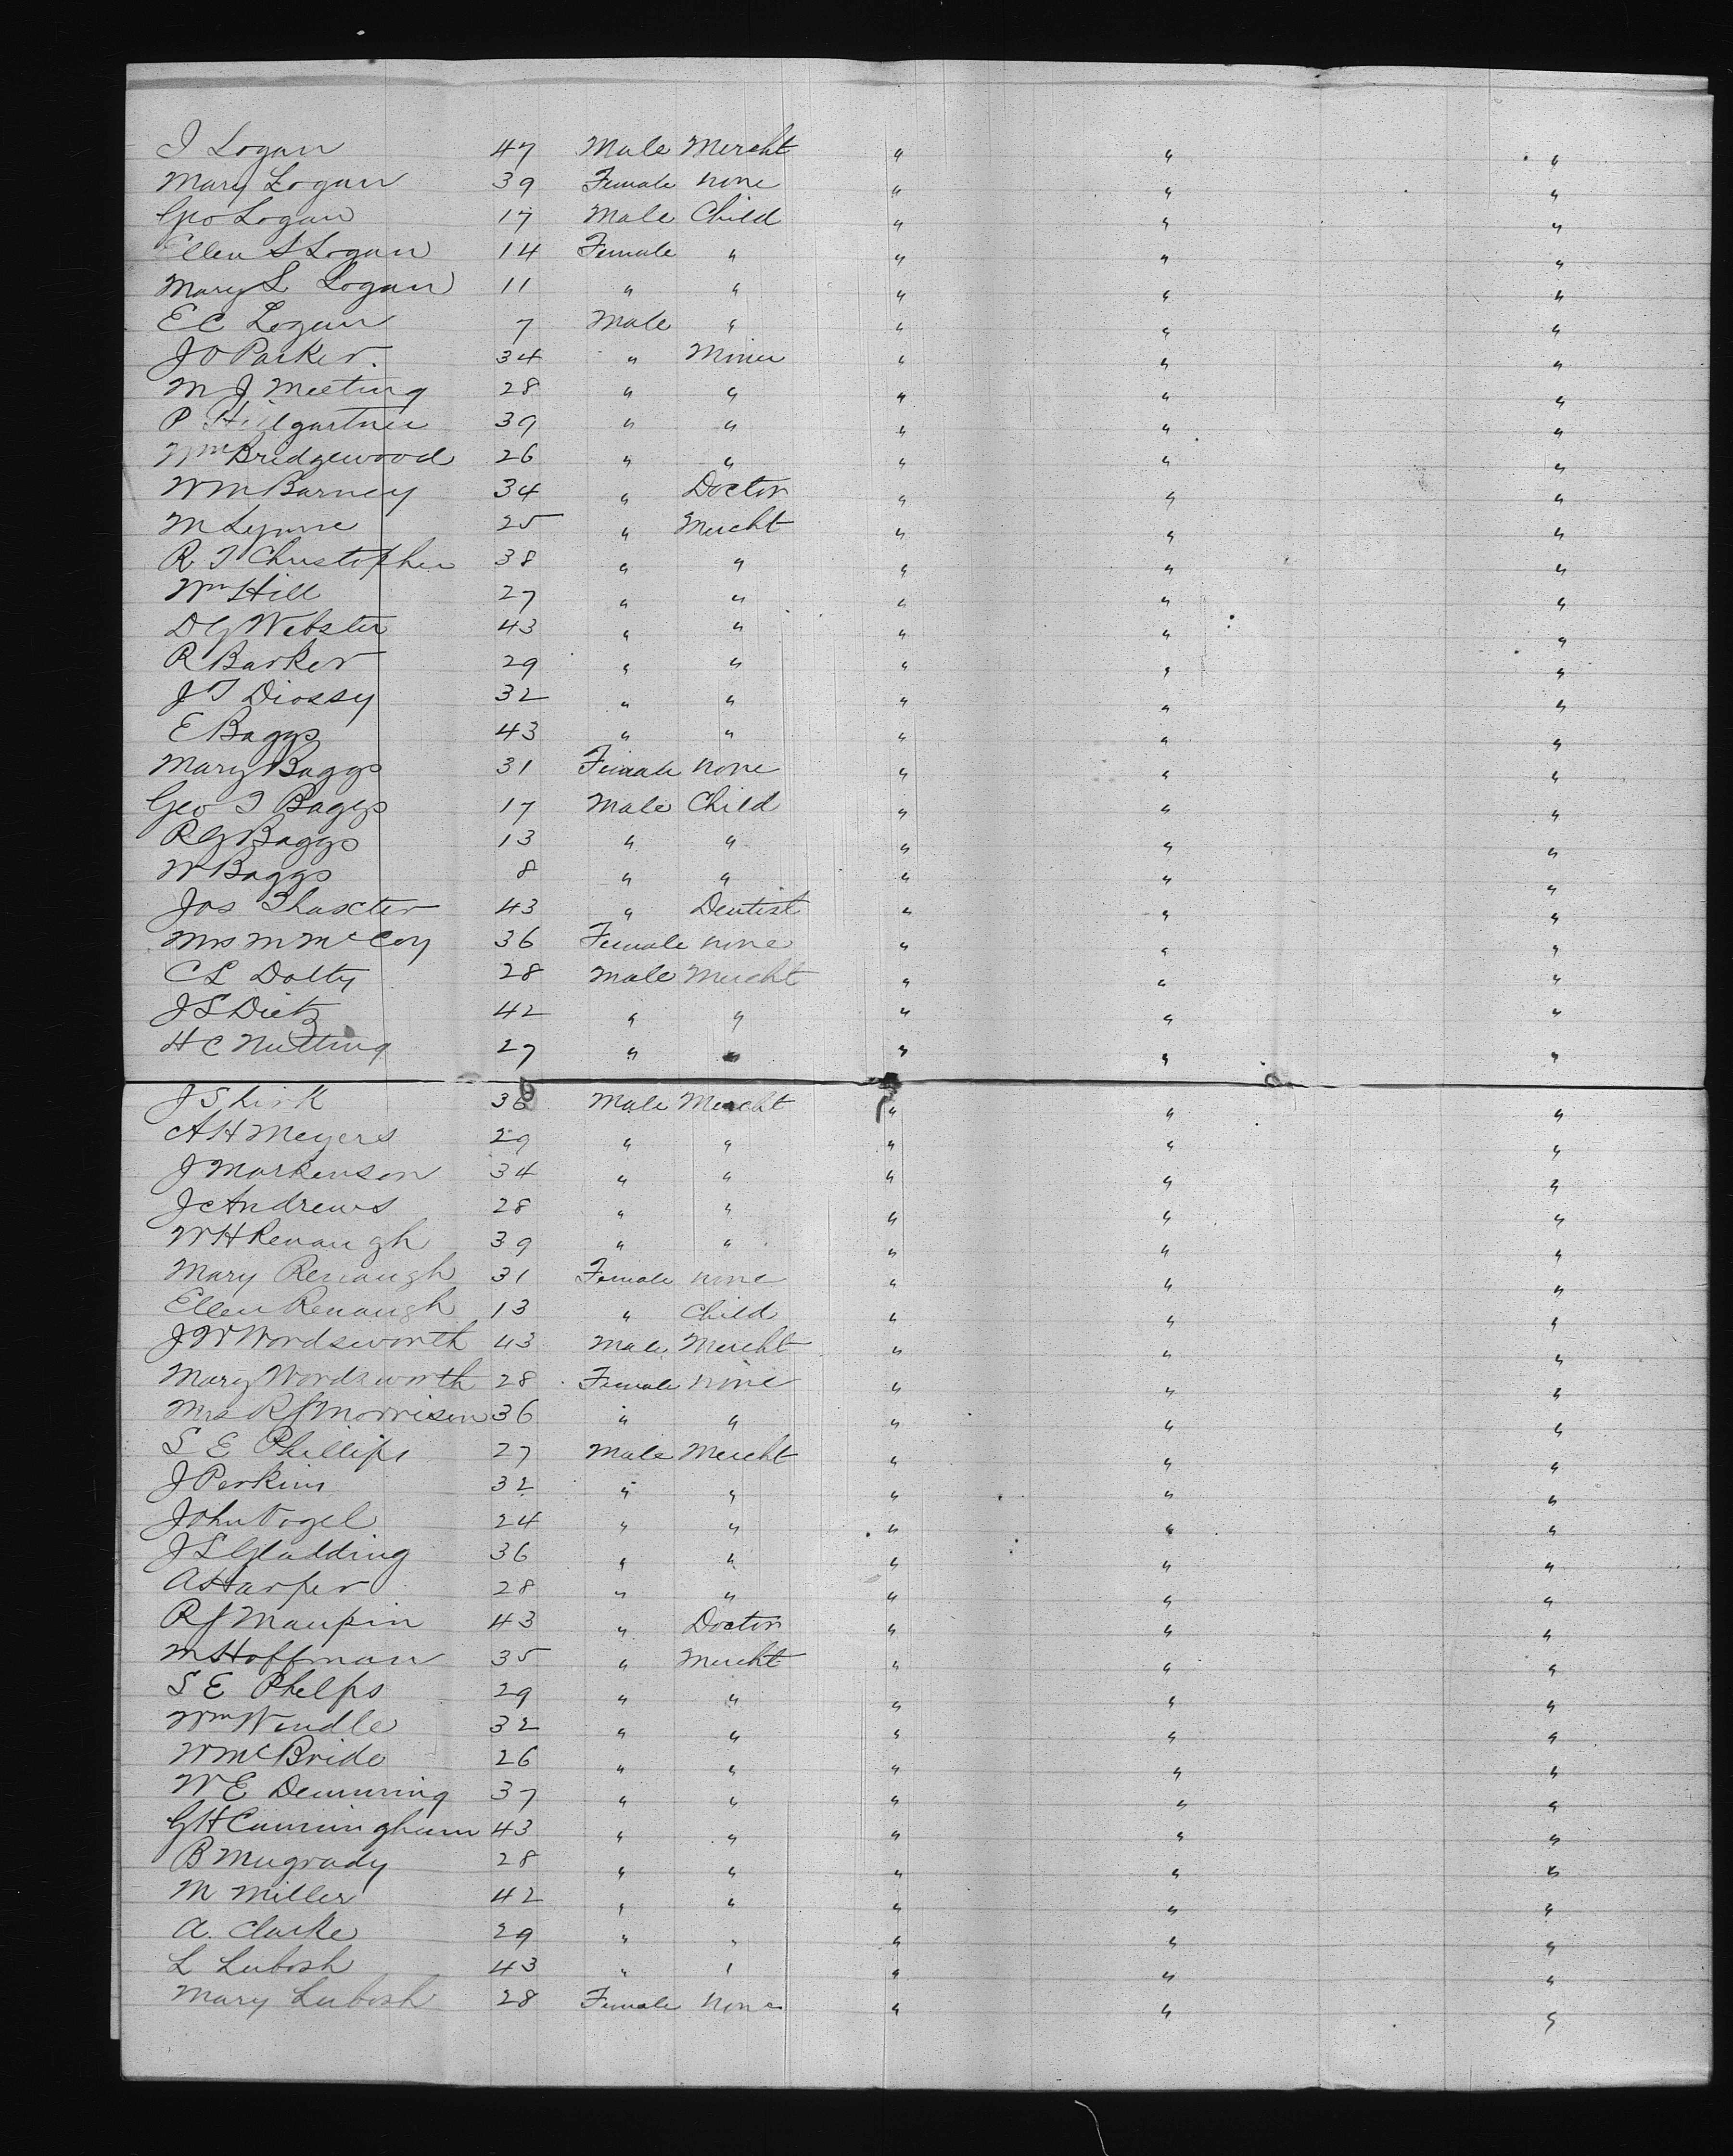 I Logan 47 Male Mercht " " "
Mary Logan 39 Female none " " "
Geo Logan 17 Male Child " " "
Ellen S Logan 14 Female " " " "
Mary L Logan 11 " " " " "
E C Logan 7 Male " " " "
J O Parker 34 " Miner " " "
M J Meeting 28 " " " " "
P Hilgartner 39 " " " " "
Wm Bridgewood 26 " " " " "
Wm Barney 34 " Doctor " " "
M Lynne 25 " Mercht " " "
R T Christopher 38 " " " " "
Wm Hill 27 " " " " "
D G Webster 43 " " " " "
R Barker 29 " " " " "
J T Diossy 32 " " " " "
E Baggs 43 " " " " "
Mary Baggs 31 Female none " " "
Geo T Baggs 17 Male Child " " "
R G Baggs 13 " " " " "
W Baggs 8 " " " " "
Jos Thaxter 43 " Dentist " " "
Mrs M McCoy 36 Female none " " "
C L Dolty 28 Male Mercht " " "
J S Dietz 42 " " " " "
H C Nutting 27 " " " " "
J Shirk 36 Male Mercht " " "
A H Meyers 29 " " " " "
J Markenson 34 " " " " "
J C Andrews 28 " " " " "
W H Renaugh 39 " " " " "
Mary Renaugh 31 Female none " " "
Ellen Renaugh 13 " Child " " "
J W Wordsworth 43 Male Mercht " " "
Mary Wordsworth 28 Female none " " "
Mrs R J Morrison 36 " " " " "
S E Phillips 27 Male Mercht " " "
J Perkins 32 " " " " "
John Vogel 24 " " " " "
J S Gladding 36 " " " " "
A Harper 28 " " " " "
R J Maupin 43 " Doctor " " "
M Hoffman 35 " Mercht " " "
S E Phelps 29 " " " " "
Wm Windle 32 " " " " "
W McBride 26 " " " " "
W E Demming 37 " " " " "
G H Cunningham 43 " " " " "
B Mugrady 28 " " " " "
M Miller 42 " " " " "
A. Clarke 29 " " " " "
L Lubosh 43 " " " " "
Mary Lubosh 28 Female none " " "